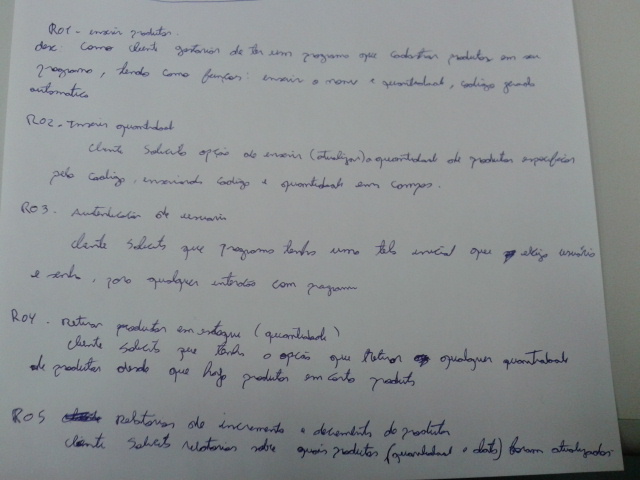 R01 - inserir produtos.
des: Como cliente gostaria de ter um programa que cadastrar produtos em seu
programa, tendo como funções: inserir o nome e quantidade, codigo gerado
automatico
R02 - Inserir quantidade
cliente solicita opção de inserir (atualizar) a quantidade de produtos especificos
pelo codigo, inserindo codigo e quantidade em campos.
R03 - Autenticação de usuario
cliente solicita que programa tenha uma tela inicial que exija usuário
e senha, para qualquer interação com programa
R04 - Retirar produtos em estoque (quantidade)
cliente solicita que tenha a opção que retirar qualquer quantidade
de produtos desde que haja produtos em produto
R05 Relatorios de incremento e decremento de produtos
cliente solicita relatorios sobre quais produtos (quantidade e data) foram atualizados